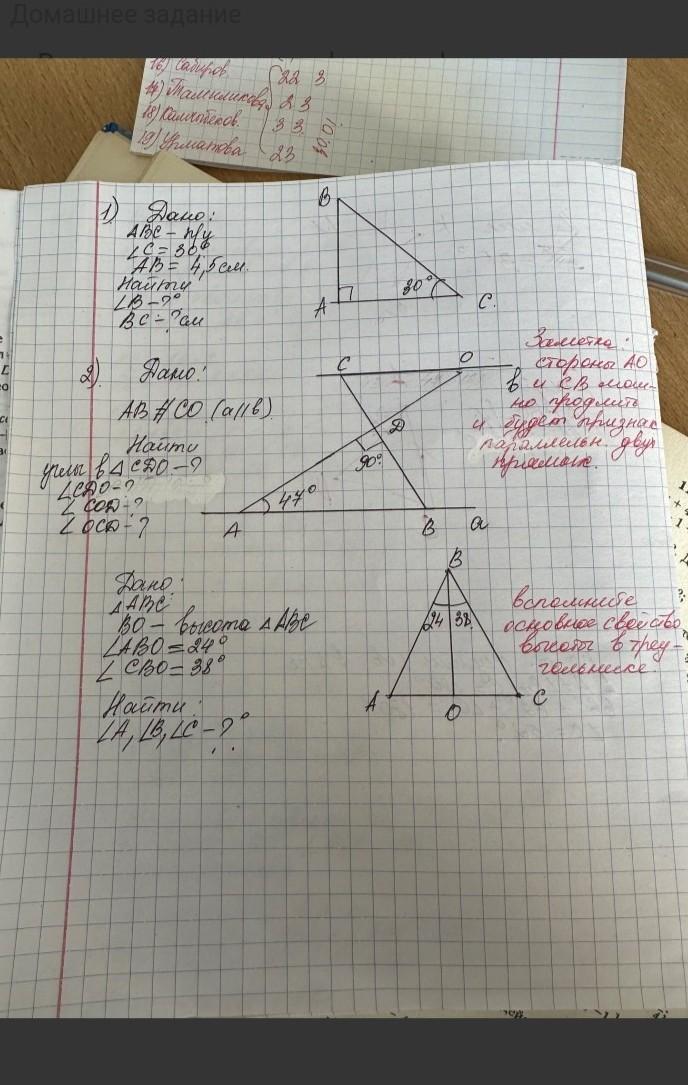 Домашнее задание
16) Сабиров 22 3
23
18) 33
19) Урматова 23
1) Дано:
ABC - п/у
∠C = 30°
AB = 4,5 см.
Найти
∠B - ?°
BC - ? см
B
A
30°
C.
2) Дано:
AB ∦ CO (a || b)
Найти
углы в △CDO - ?
∠CDO - ?
∠COD - ?
∠OCD - ?
C
O
в
D
90°
47°
A
B
a
Заметка:
стороны AO
и CB мож-
но продлить
и будет признак
параллельн. двух
прямых.
Дано:
△ABC
BO - высота △ABC
∠ABO = 24°
∠CBO = 38°
Найти:
∠A, ∠B, ∠C - ?°
B
24 38
A
O
C
вспомните
основное свойство
высоты в треу-
гольнике.